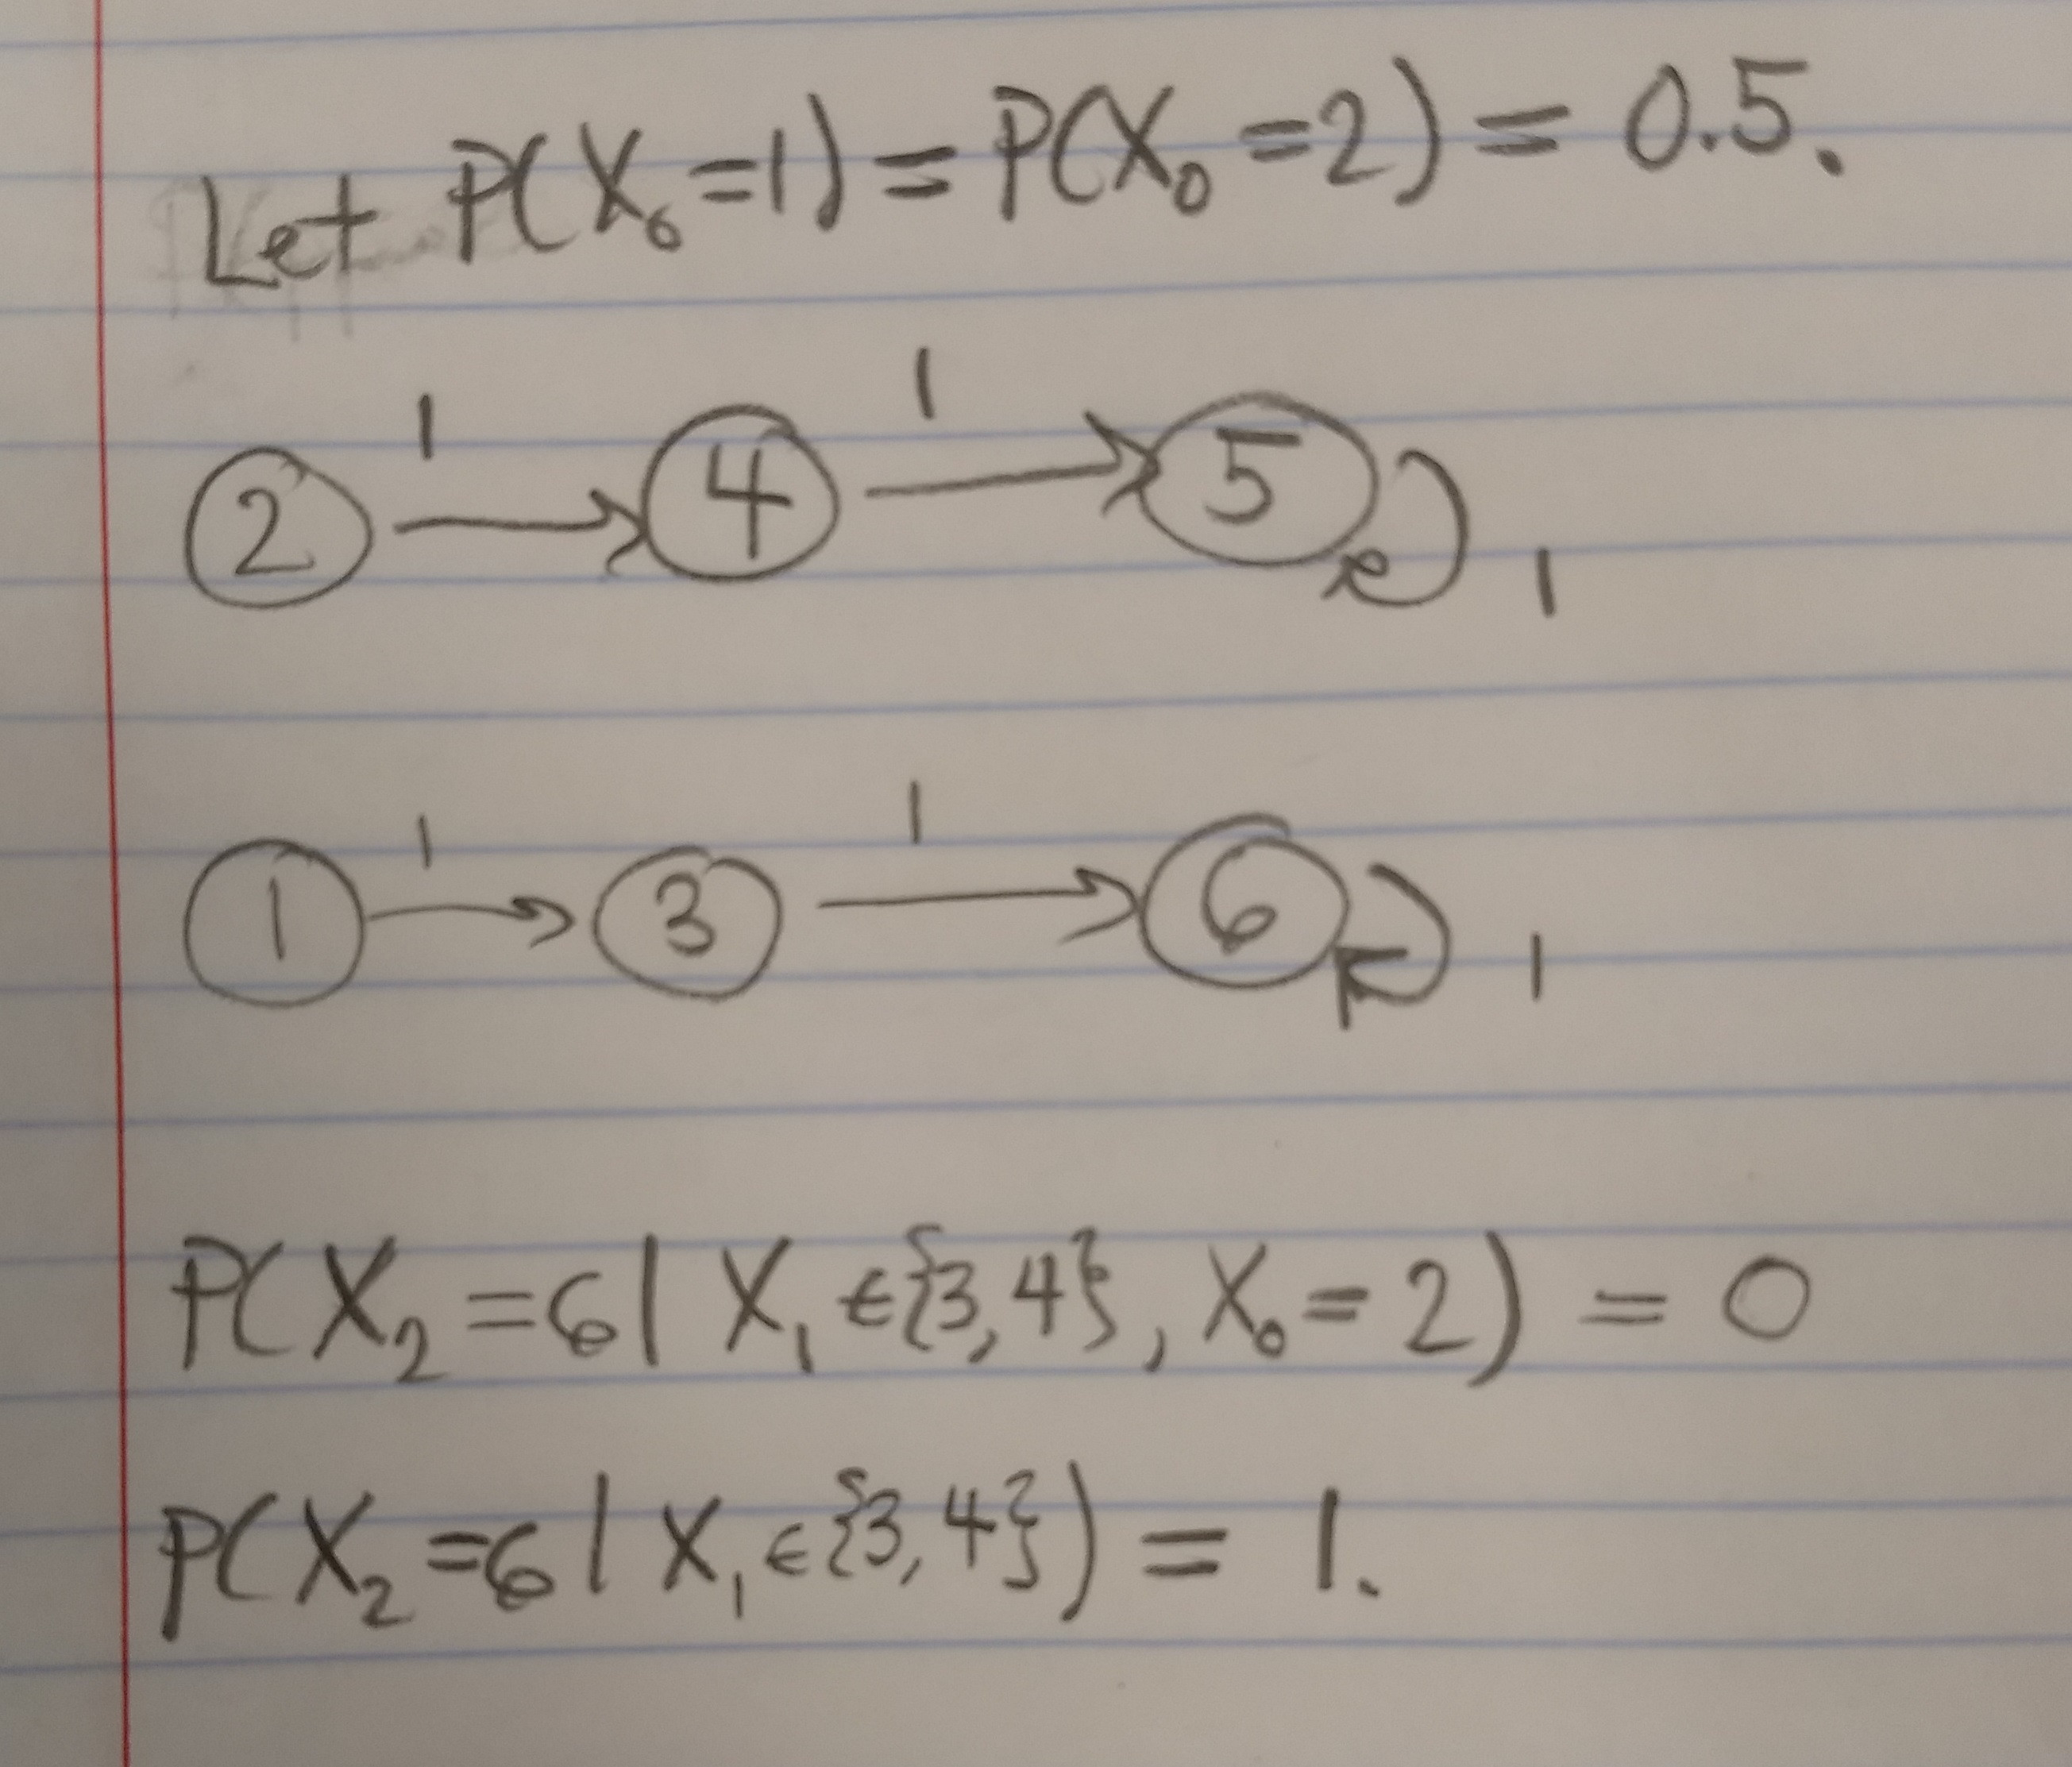 Let P(X₀=1) = P(X₀=2) = 0.5.
1 1
2 4 5 1
1 1
1 3 6 1
P(X₂=6 | X₁ ∈ {3,4}, X₀=2) = 0
P(X₂=6 | X₁ ∈ {3,4}) = 1.